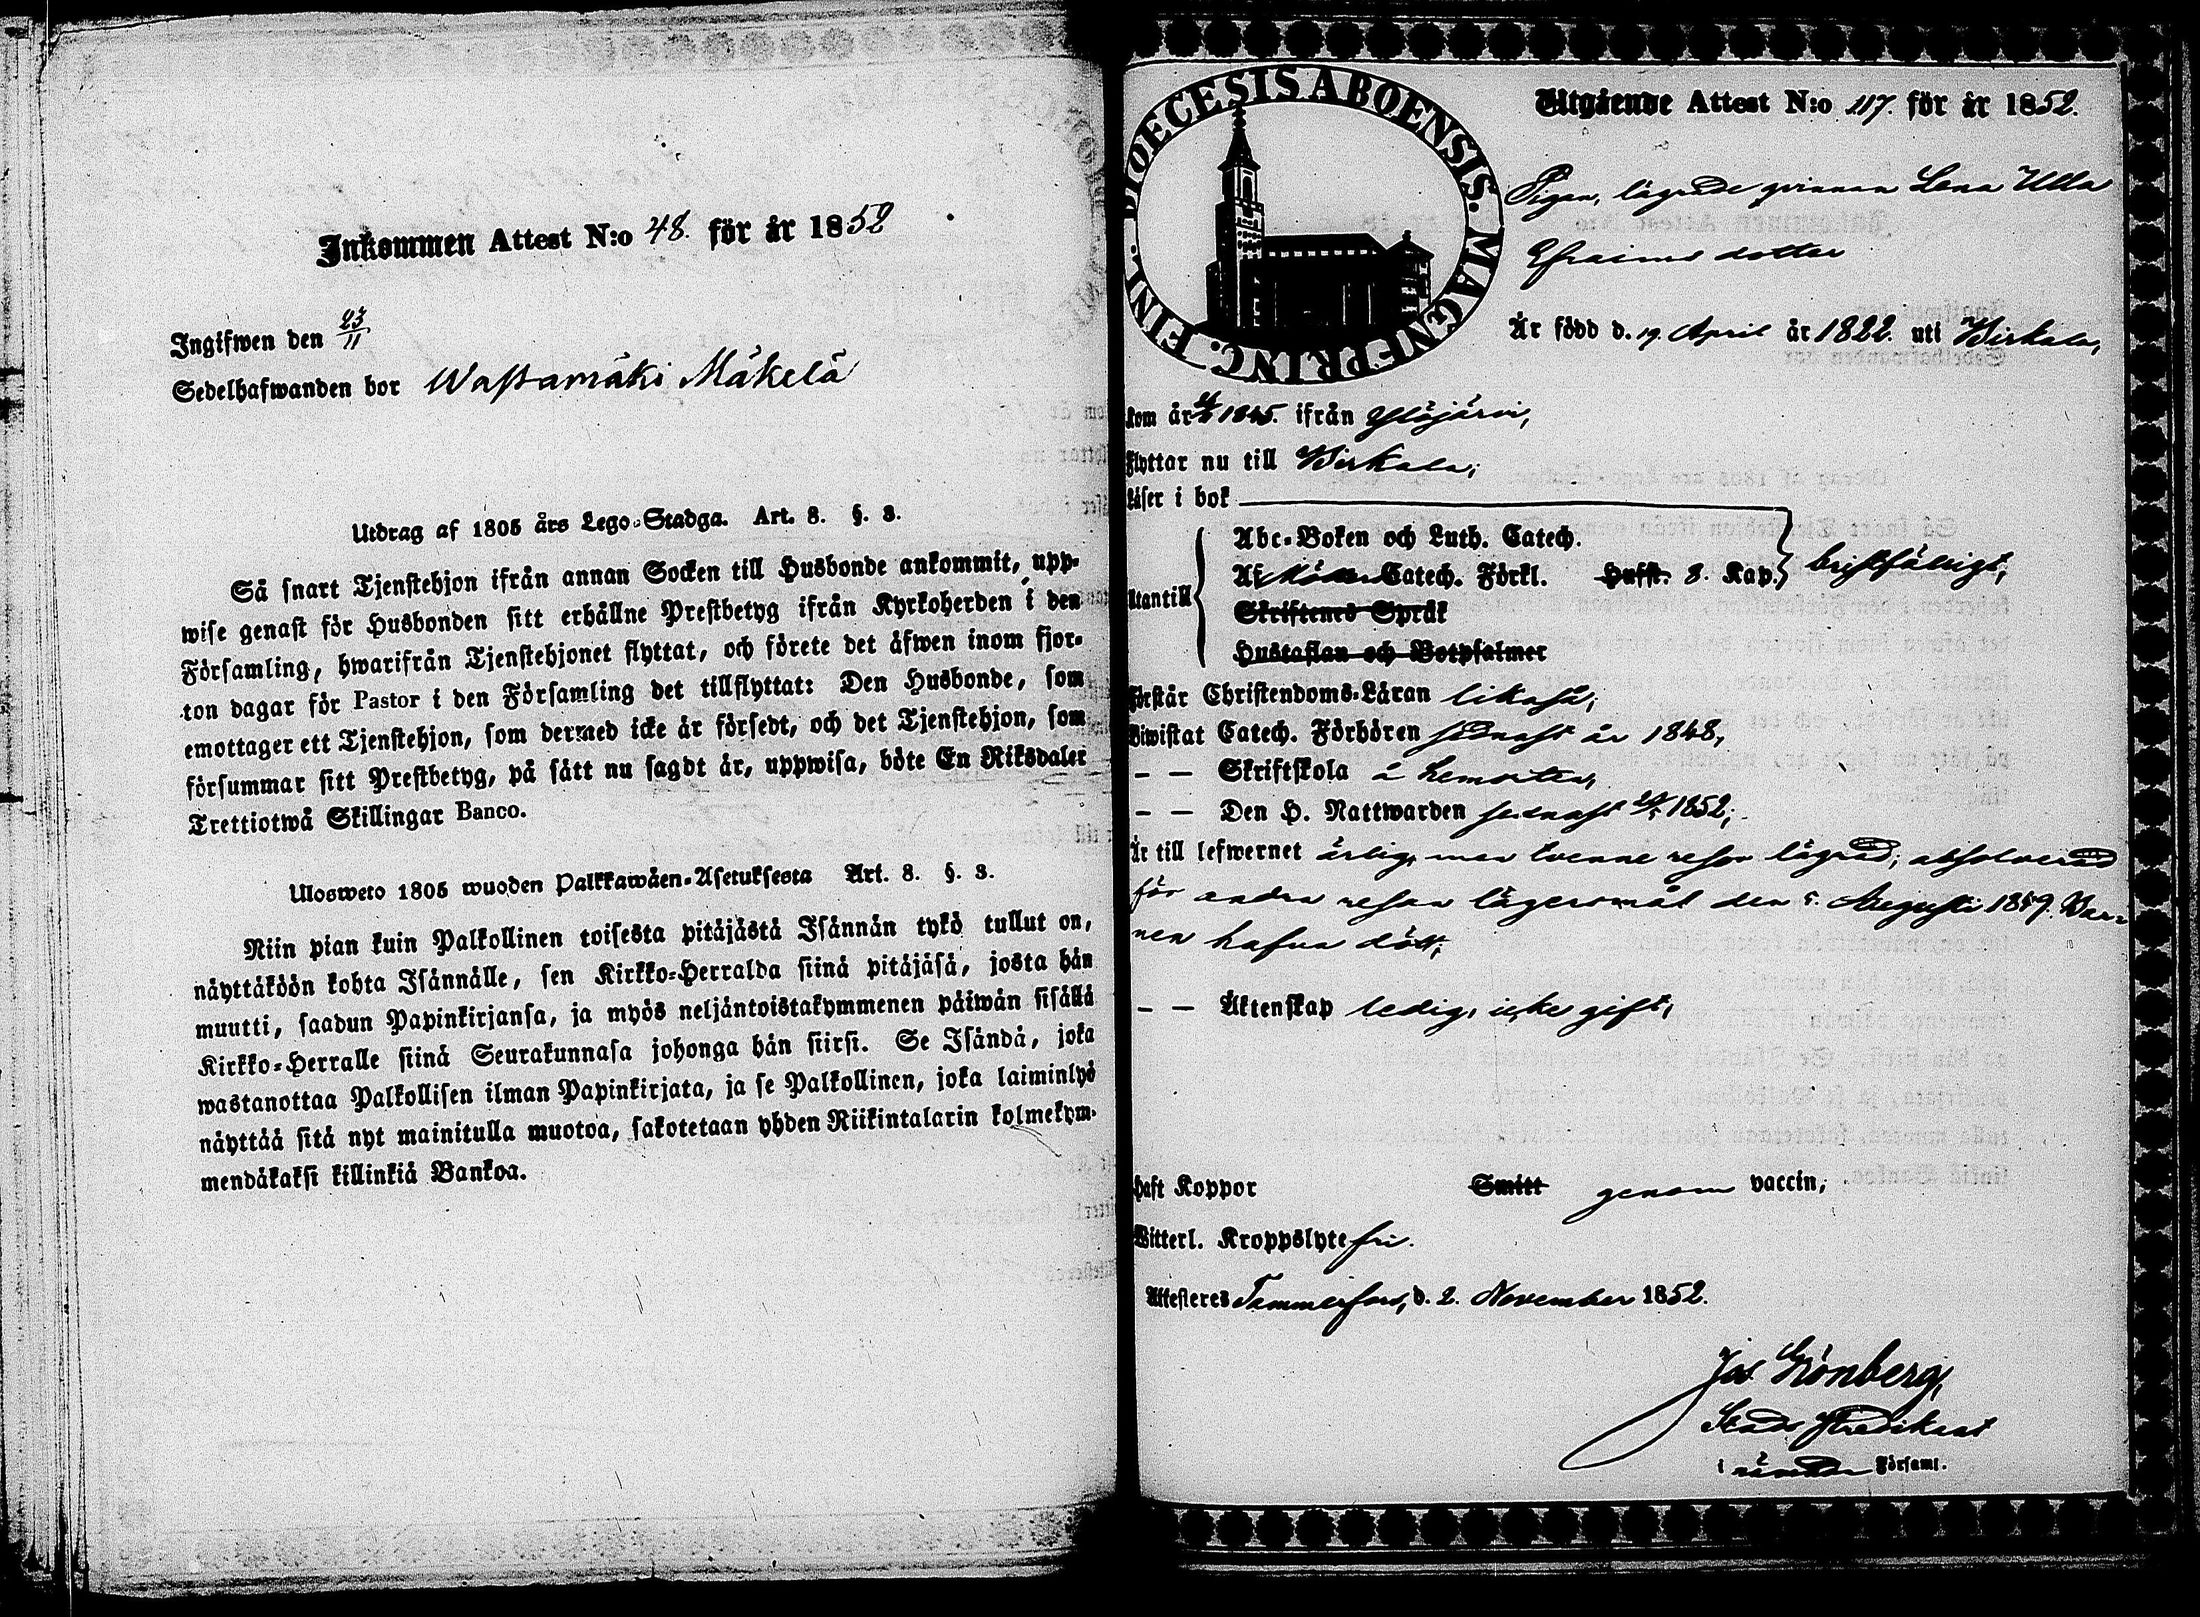 Inkommen Attest N:o 48. för år 1852
Ingifwen den 23/11
Sedelhafwanden bor Wastamäki Mäkelä
Utdrag af 1805 års Lego-Stadga. Art. 8. §. 3.
Så snart Tjenstehjon ifrån annan Socken till Husbonde ankommit, upp-
wise genast för Husbonden sitt erhållne Prestbetyg ifrån Kyrkoherden i den
Församling, hwarifrån Tjenstehjonet flyttat, och förete det äfwen inom fjor-
ton dagar för Pastor i den Församling det tillflyttat: Den Husbonde, som
emottager ett Tjenstehjon, som dermed icke är försedt, och det Tjenstehjon, som
försummar sitt Prestbetyg, på sätt nu sagdt är, uppwisa, böte En Riksdaler
Trettiotwå Skillingar Banco.
Ulosweto 1805 wuoden Palkkawäen-Asetuksesta Art. 8. §. 3.
Niin pian kuin Palkollinen toisesta pitäjästä Isännän tykö tullut on,
näyttäköön kohta Isännälle, sen Kirkko-Herralda siinä pitäjäsä, josta hän
muutti, saadun Papinkirjansa, ja myös neljäntoistakymmenen päiwän sisällä
Kirkko-Herralle siinä Seurakunnasa johonga hän siirsi. Se Isändä, joka
wastanottaa Palkollisen ilman Papinkirjata, ja se Palkollinen, joka laiminlyö
näyttää sitä nyt mainitulla muotoa, sakotetaan yhden Riikintalarin kolmekym-
mendäkaksi killinkiä Bankoa.
DIOECESIS ABOENSIS. MAGNI PRINC. FINL.
Utgående Attest N:o 117. för år 1852.
Pigan, lägrade qvinnan Lena Ulla
Efraims dotter
Är född d. 19. April år 1822. uti Birkala,
kom år 1845. ifrån Ylöjärvi,
flyttar nu till Birkala;
läser i bok
Utantill
Abc-Boken och Luth. Catech.
Af Catech. Förkl. Husst. 8. Kap. bristfälligt,
Skriftenes Språk
Hustaflan och Botpsalmer
Förstår Christendoms-Läran likaså;
Biwistat Catech. Förhören sednast år 1848,
– – Skriftskola
– – Den H. Nattwarden sednast 1852;
Är till lefwernet ärlig, men tvenne resor lägrad; absolverad
för andra resan lägersmål den 5. Augusti 1849. Bar-
nen hafva dött;
– – Äktenskap ledig, icke gift,
haft Koppor Smitt genom vaccin,
Witterl. Kroppslyte fri.
Attesteres Tammerfors, d. 2. November 1852.
Jos Grönberg,
Stads Predikant
i nämnda Församl.